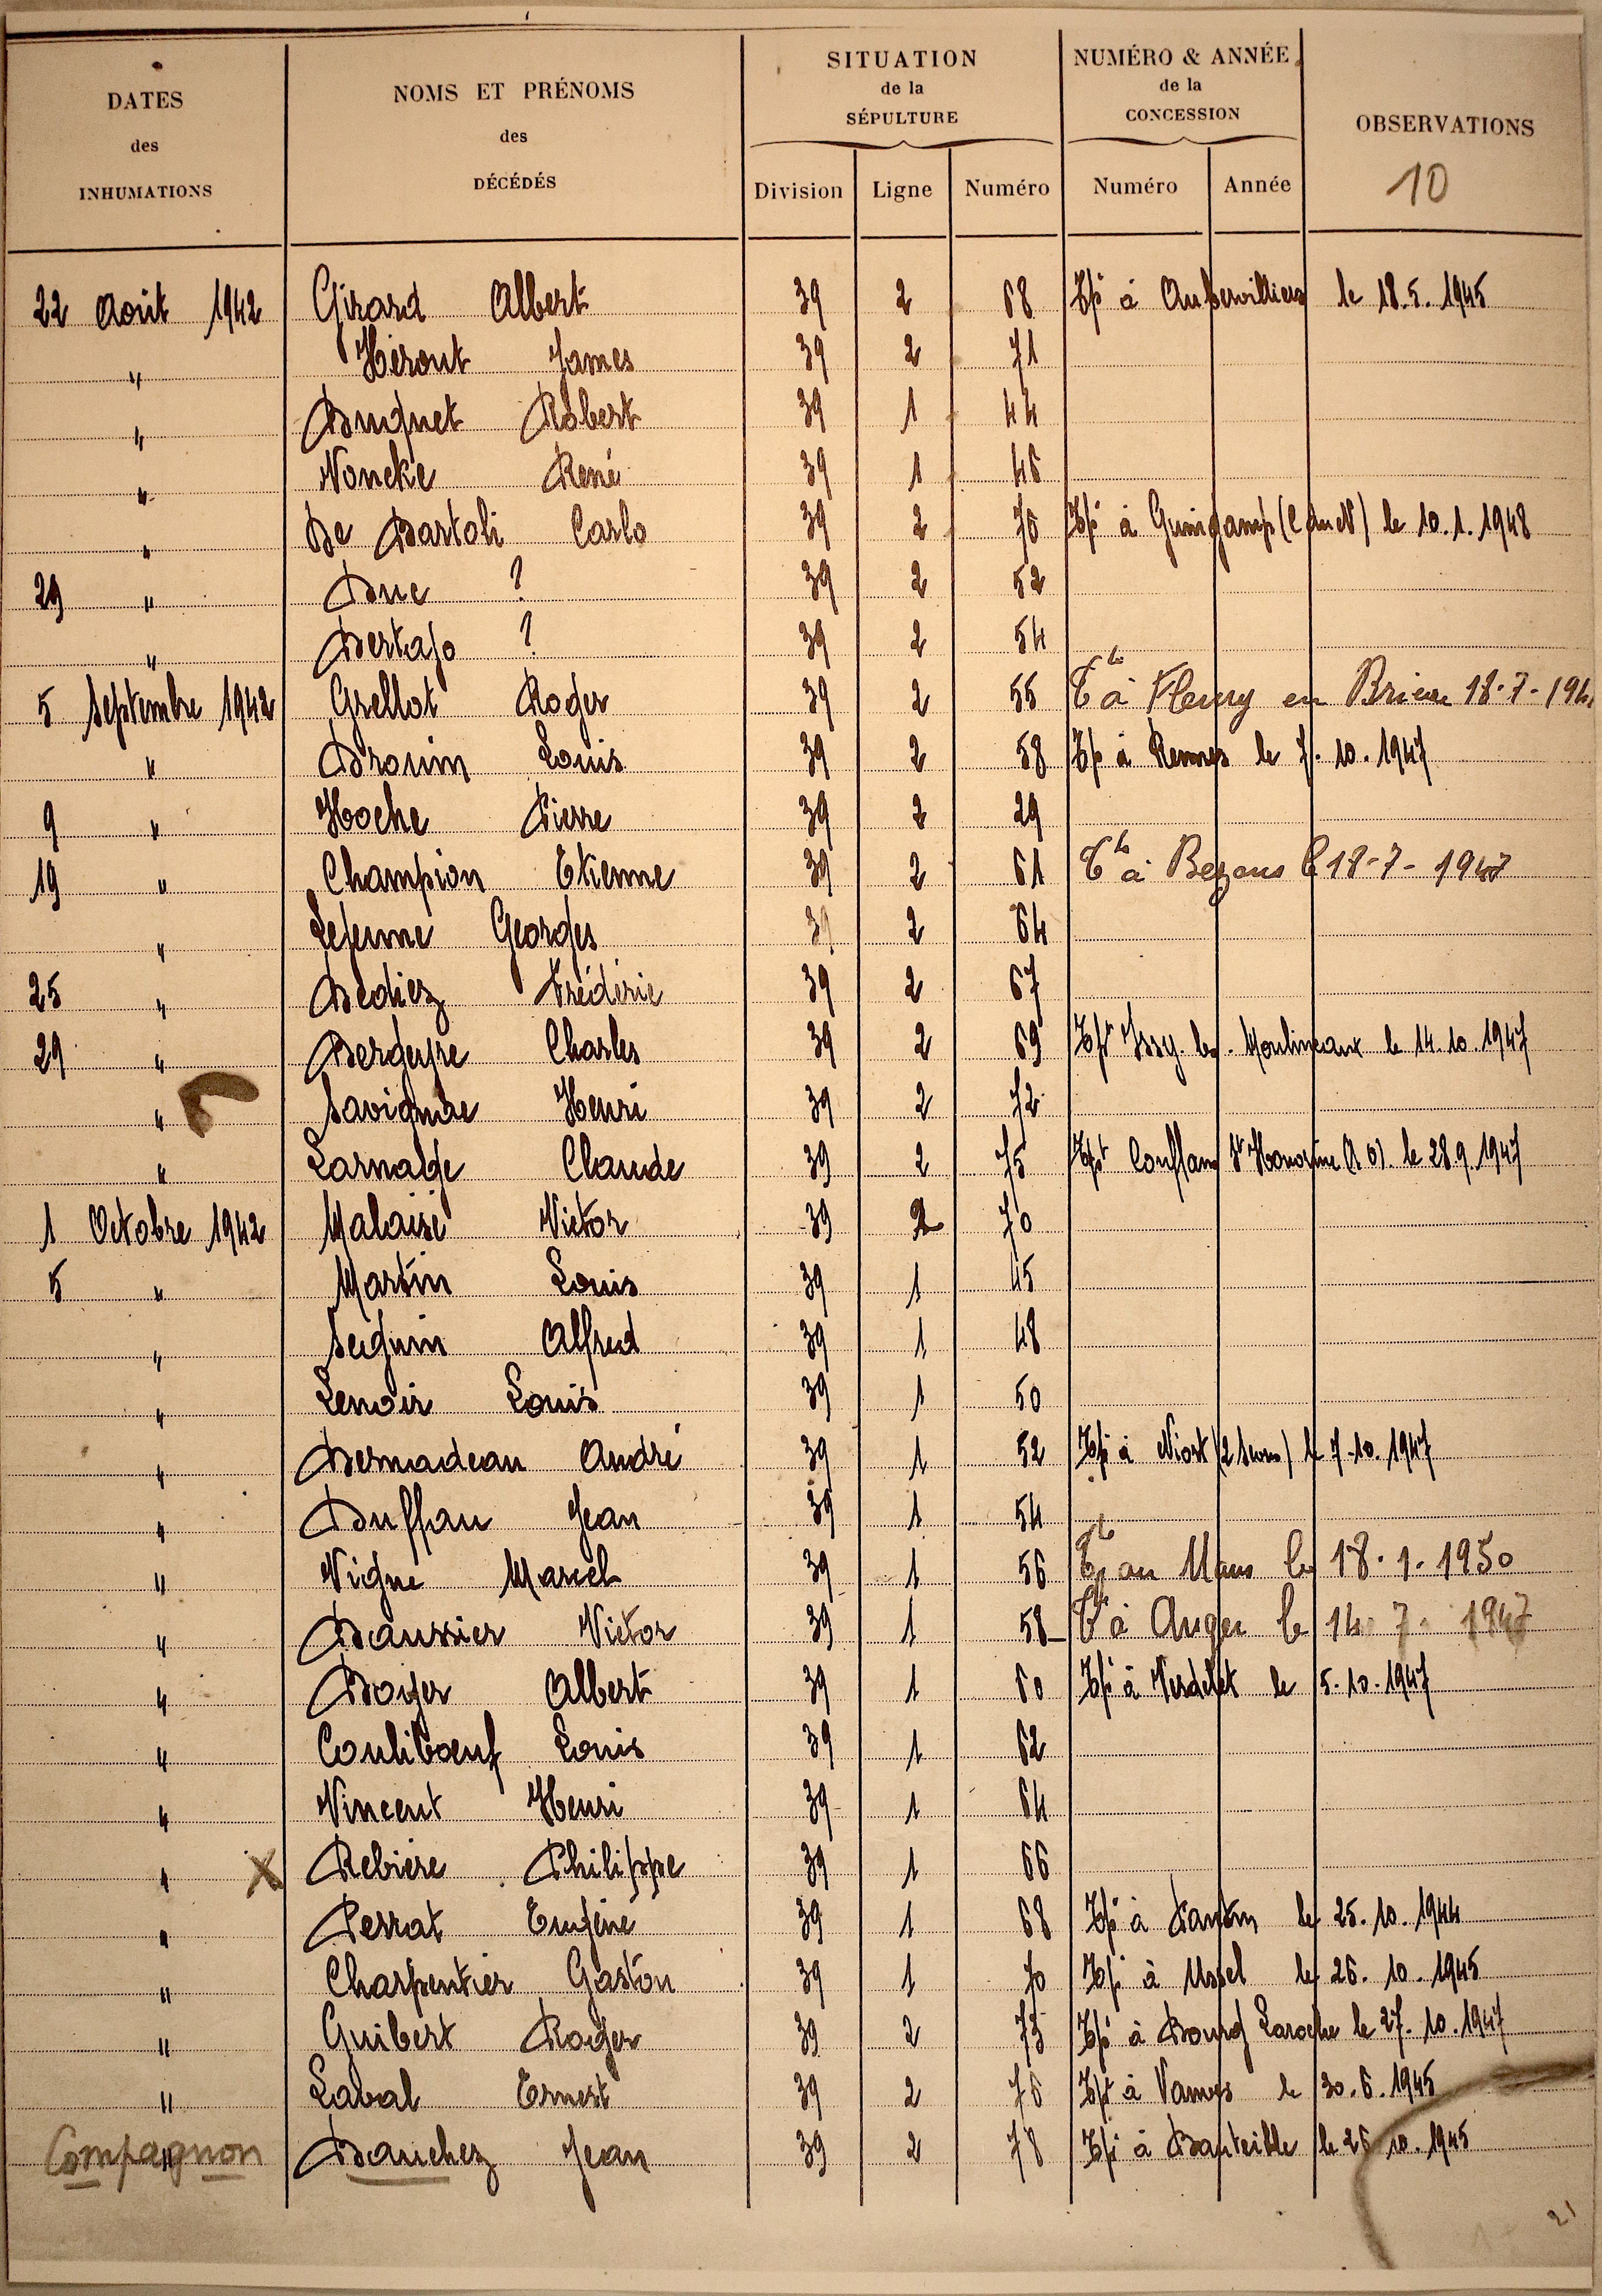 DATES des INHUMATIONS
NOMS ET PRÉNOMS des DÉCÉDÉS
SITUATION de la SÉPULTURE
NUMÉRO & ANNÉE de la CONCESSION
OBSERVATIONS
10
Division Ligne Numéro Numéro Année
22 Août 1942 Girard Albert 39 2 68 Tpé à Aubervilliers le 18.5.1945
" Hérout James 39 2 71
" Buquet Robert 39 1 44
" Voncke René 39 1 46
" De Bartoli Carlo 39 2 76 Tpé à Guingamp (C du N) le 10.1.1948
29 " Duc ? 39 2 52
" Bertajo ? 39 2 54
5 Septembre 1942 Grellot Roger 39 2 55 Tté à Fleury en 18-7-194
" Drouin Louis 39 2 58 Tpé à Rennes le 7.10.1947
9 " Hoche Pierre 39 2 29
19 " Champion Etienne 39 2 61 Tté à Bezons le 18-7-1947
" Georges 39 2 64
25 " Bediez Frédéric 39 2 67
29 " Bergeyre Charles 39 2 69 Tpt Issy. les. Moulineaux le 14.10.1947
" Henri 39 2 72
" Larnalge Claude 39 2 75 Tpt Conflans Ste Honorine le 28.9.1947
1 Octobre 1942 Malaisé Victor 39 2 70
5 " Martin Louis 39 1 45
" Seguin Alfred 39 1 48
" Lenoir Louis 39 1 50
" Bernadeau André 39 1 52 Tpé à Niort (2 Sèvres) le 7.10.1947
" Duffau Jean 39 1 54
" Vigne Marcel 39 1 56 Tté au Mans le 18.1.1950
" Daussier Victor 39 1 58 Tté à Angers le 14 7 1947
" Boyer Albert 39 1 60 Tpé à Verdelet le 5.10.1947
" Couliboeuf Louis 39 1 62
" Vincent Henri 39 1 64
" X Rebière Philippe 39 1 66
" Perrat Eugène 39 1 68 Tpé à Pantin le 25.10.1944
" Charpentier Gaston 39 1 70 Tpé à Ussel le 26.10.1945
" Guibert Roger 39 2 73 Tpé à Bourg Laroche le 27.10.1947
" Laval Ernest 39 2 76 Tpt à Vanves le 30.6.1945
Compagnon " Bauchez Jean 39 2 78 Tpé à le 26.10.1945
21